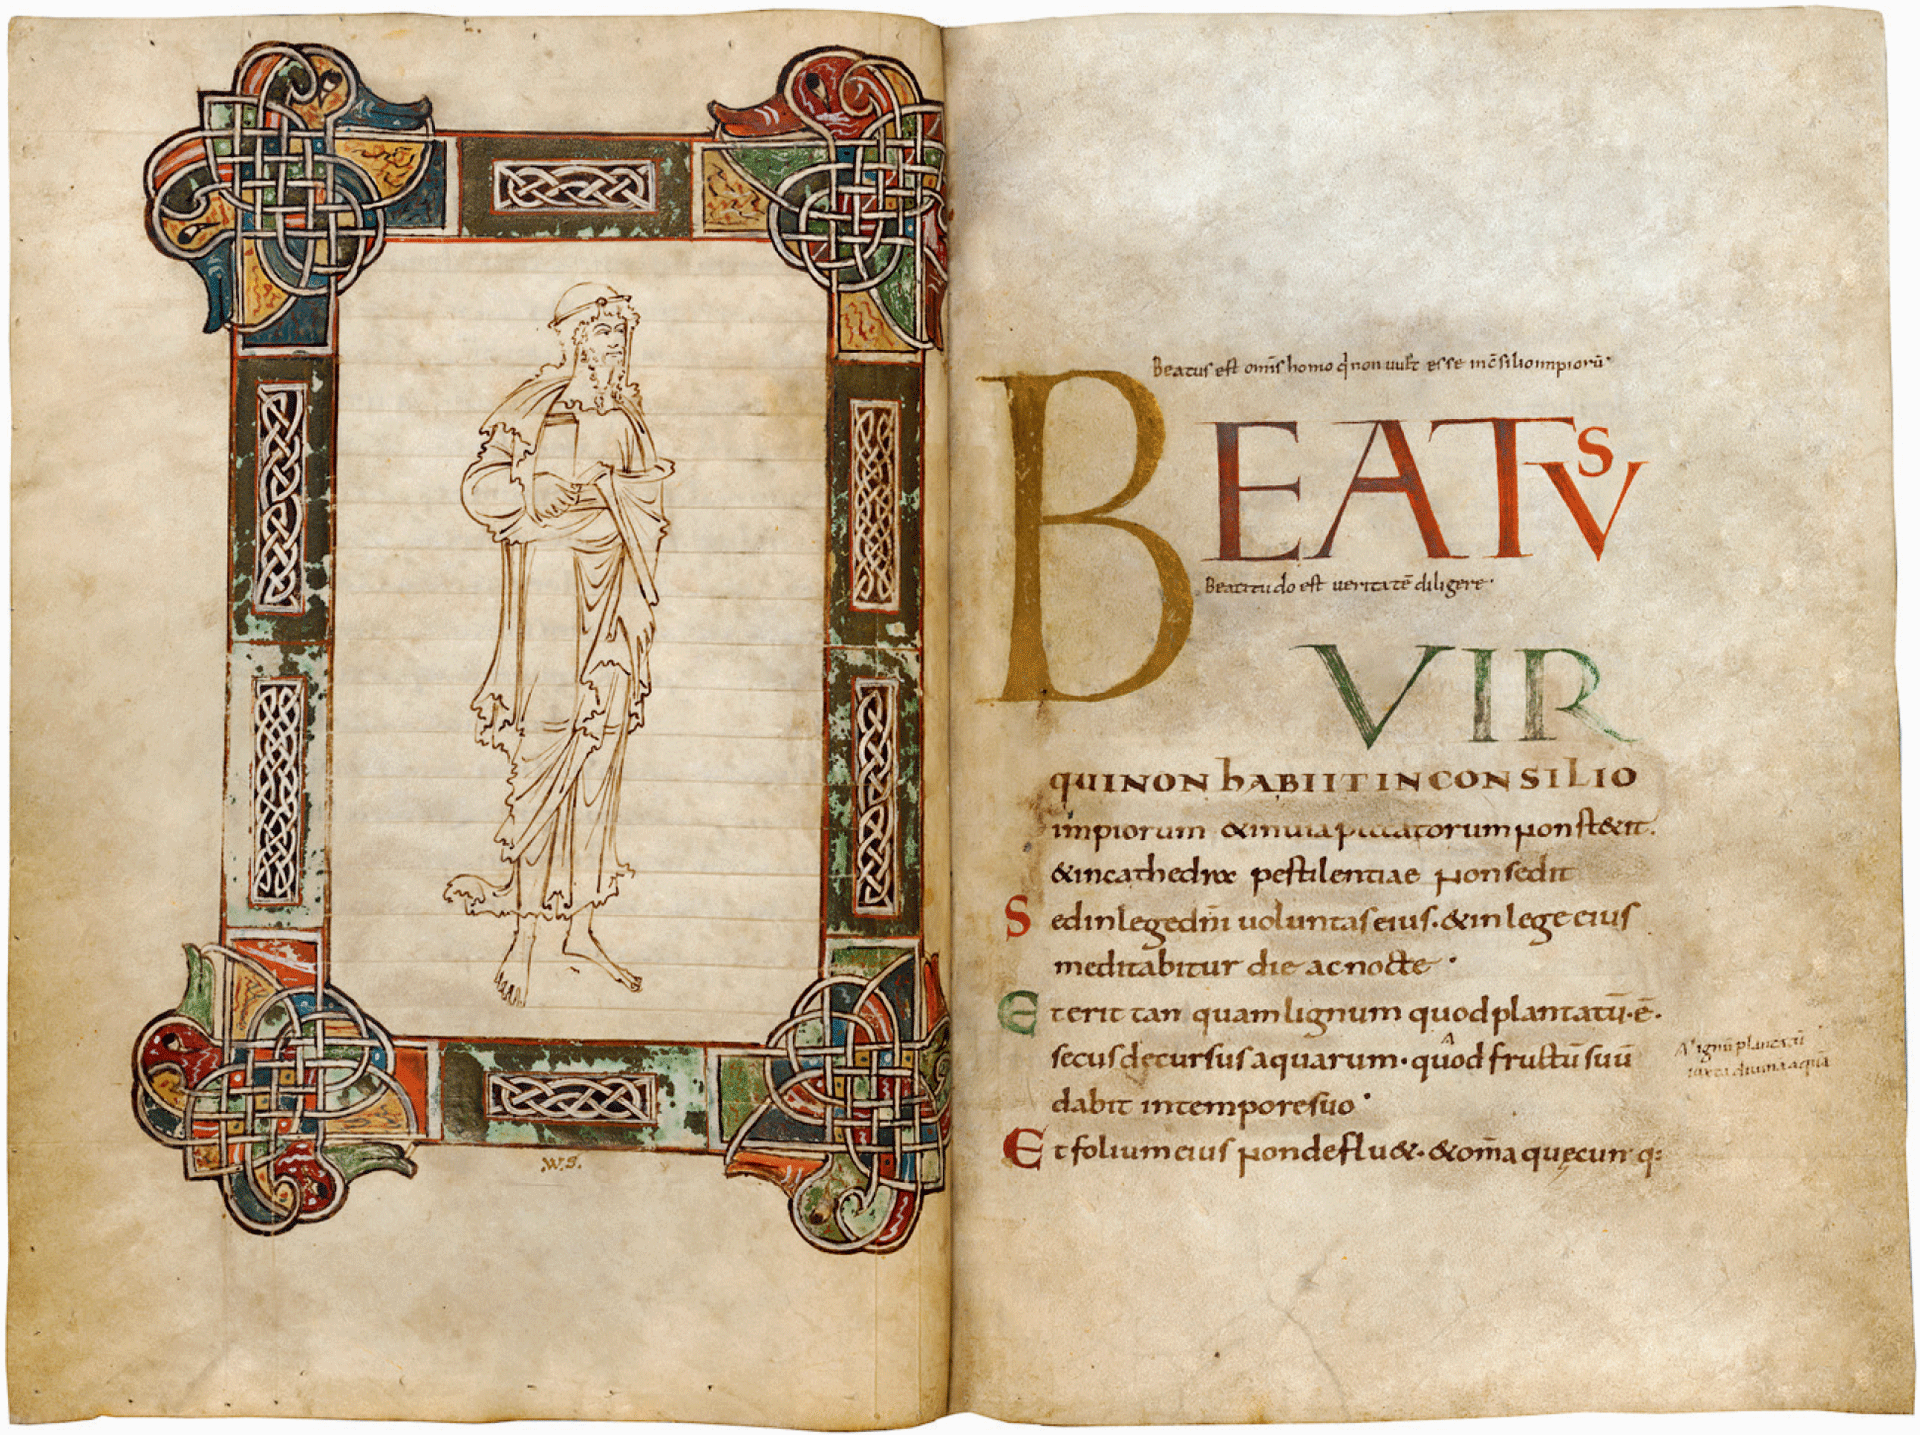 .W.S.
Beatus est om̄s homo q̄ non vult esse in c̄silio impiorū·
BEATVS
Beatitudo est veritatē diligere·
VIR
QUI NON hABIIT IN CONSILIO
impiorum & in uia peccatorum non stetit.
& in cathedrae pestilentiae non sedit
Sed in lege dn̄i uoluntas eius. & in lege eius
meditabitur die ac nocte·
Et erit tan quam lignum quod plantatū·ē·
secus decursus aquarum· quod fructū suū
dabit in tempore suo·
Et folium eius non defluet· & om̄a quęcunq:
lignū plantatū
iuxta diuina aquā